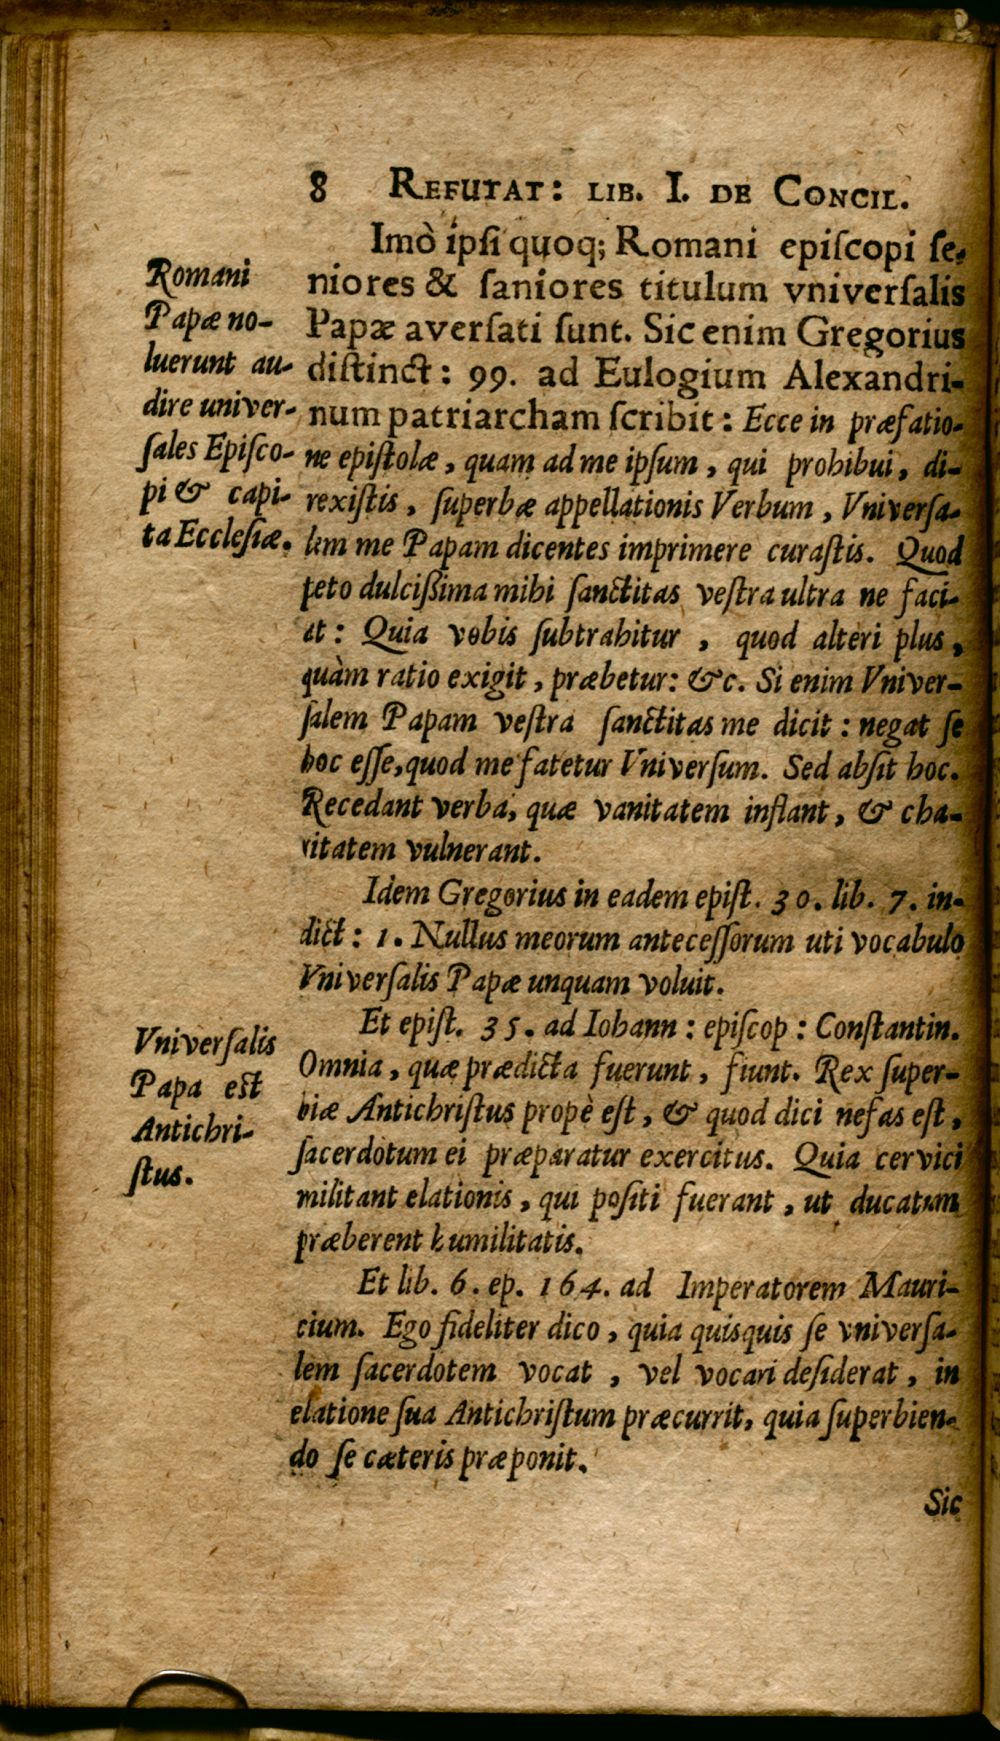 8 REFUTAT: LIB. I. DE CONCIL.
Imò ipſi quoq; Romani epiſcopi ſe-
niores & ſaniores titulum vniverſalis
Papæ averſati ſunt. Sic enim Gregorius
diſtinct: 99. ad Eulogium Alexandri-
num patriarcham ſcribit: Ecce in præfatio-
ne epiſtolæ, quam ad me ipſum, qui prohibui, di-
rexiſtis, ſuperbæ appellationis Verbum, Vniverſa-
lem me Papam dicentes imprimere curaſtis. Quod
peto dulciſſima mihi ſanctitas veſtra ultra ne faci-
at: Quia vobis ſubtrahitur, quod alteri plus,
quàm ratio exigit, præbetur: &c. Si enim Vniver-
ſalem Papam veſtra ſanctitas me dicit: negat ſe
hoc eſſe, quod me fatetur Vniverſum. Sed abſit hoc.
Recedant verba, quæ vanitatem inflant, & cha-
ritatem vulnerant.
Idem Gregorius in eadem epiſt. 30. lib. 7. in-
dict: 1. Nullus meorum anteceſſorum uti vocabulo
Vniverſalis Papæ unquam voluit.
Et epiſt. 35. ad Iohann: epiſcop: Conſtantin.
Omnia, quæ prædicta fuerunt, fiunt. Rex ſuper-
biæ Antichriſtus propè eſt, & quod dici nefas eſt,
ſacerdotum ei præparatur exercitus. Quia cervici
militant elationis, qui poſiti fuerant, ut ducatum
præberent humilitatis.
Et lib. 6. ep. 164. ad Imperatorem Mauri-
cium. Ego fideliter dico, quia quisquis ſe vniverſa-
lem ſacerdotem vocat, vel vocari deſiderat, in
elatione ſua Antichriſtum præcurrit, quia ſuperbien-
do ſe cæteris præponit.
Sic
Romani
Papæ no-
luerunt au-
dire univer-
ſales Epiſco-
pi & capi-
ta Eccleſiæ.
Vniverſalis
Papa eſt
Antichri-
ſtus.